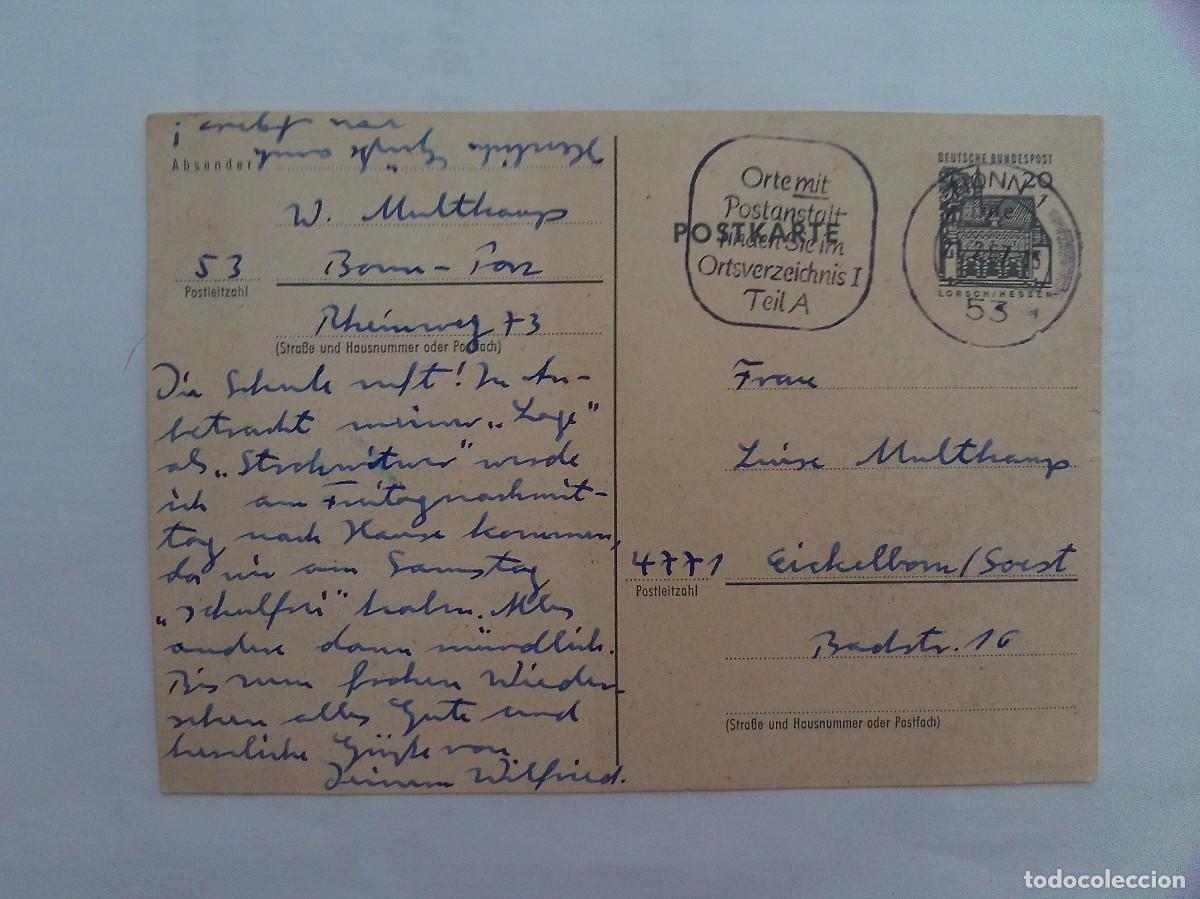 Absender
W. Multhaup
53
Bonn-
Postleitzahl
Rheinweg 73
(Straße und Hausnummer oder Postfach)
Die Schule ruft! In An-
betracht meiner „Lage"
als „Strohwitwer" werde
ich am Freitagnachmit-
tag nach Hause kommen,
da wir am Samstag
„schulfrei" haben. Alles
andere dann mündlich.
Bis zum frohen Wieder-
sehen alles Gute und
herzliche Grüße von
Deinem Wilfried.
Herzliche Grüße auch
von
Orte mit
Postanstalt
finden Sie im
Ortsverzeichnis I
Teil A
POSTKARTE
DEUTSCHE BUNDESPOST
BONN 20
LORSCH/HESSEN
53
Frau
Luise Multhaup
4771 Eickelborn/Soest
Postleitzahl
Badstr. 16
(Straße und Hausnummer oder Postfach)
todocoleccion